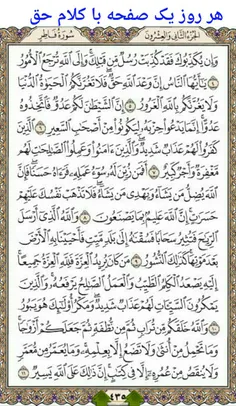 هر روز یک صفحه با کلام حق
الجزء الثاني والعشرون سورة فاطر
وَإِن يُكَذِّبُوكَ فَقَدْ كُذِّبَتْ رُسُلٌ مِّن قَبْلِكَ وَإِلَى اللَّهِ تُرْجَعُ الْأُمُورُ
﴿٤﴾ يَا أَيُّهَا النَّاسُ إِنَّ وَعْدَ اللَّهِ حَقٌّ فَلَا تَغُرَّنَّكُمُ الْحَيَاةُ الدُّنْيَا
وَلَا يَغُرَّنَّكُم بِاللَّهِ الْغَرُورُ ﴿٥﴾ إِنَّ الشَّيْطَانَ لَكُمْ عَدُوٌّ فَاتَّخِذُوهُ
عَدُوًّا إِنَّمَا يَدْعُو حِزْبَهُ لِيَكُونُوا مِنْ أَصْحَابِ السَّعِيرِ ﴿٦﴾ الَّذِينَ كَفَرُوا
لَهُمْ عَذَابٌ شَدِيدٌ وَالَّذِينَ آمَنُوا وَعَمِلُوا الصَّالِحَاتِ لَهُم
مَّغْفِرَةٌ وَأَجْرٌ كَبِيرٌ ﴿٧﴾ أَفَمَن زُيِّنَ لَهُ سُوءُ عَمَلِهِ فَرَآهُ حَسَنًا فَإِنَّ
اللَّهَ يُضِلُّ مَن يَشَاءُ وَيَهْدِي مَن يَشَاءُ فَلَا تَذْهَبْ نَفْسُكَ عَلَيْهِمْ
حَسَرَاتٍ إِنَّ اللَّهَ عَلِيمٌ بِمَا يَصْنَعُونَ ﴿٨﴾ وَاللَّهُ الَّذِي أَرْسَلَ
الرِّيَاحَ فَتُثِيرُ سَحَابًا فَسُقْنَاهُ إِلَى بَلَدٍ مَّيِّتٍ فَأَحْيَيْنَا بِهِ الْأَرْضَ
بَعْدَ مَوْتِهَا كَذَلِكَ النُّشُورُ ﴿٩﴾ مَن كَانَ يُرِيدُ الْعِزَّةَ فَلِلَّهِ الْعِزَّةُ جَمِيعًا
إِلَيْهِ يَصْعَدُ الْكَلِمُ الطَّيِّبُ وَالْعَمَلُ الصَّالِحُ يَرْفَعُهُ وَالَّذِينَ
يَمْكُرُونَ السَّيِّئَاتِ لَهُمْ عَذَابٌ شَدِيدٌ وَمَكْرُ أُولَئِكَ هُوَ يَبُورُ
﴿١٠﴾ وَاللَّهُ خَلَقَكُم مِّن تُرَابٍ ثُمَّ مِن نُّطْفَةٍ ثُمَّ جَعَلَكُمْ أَزْوَاجًا
وَمَا تَحْمِلُ مِنْ أُنثَى وَلَا تَضَعُ إِلَّا بِعِلْمِهِ وَمَا يُعَمَّرُ مِن مُّعَمَّرٍ
وَلَا يُنقَصُ مِنْ عُمُرِهِ إِلَّا فِي كِتَابٍ إِنَّ ذَلِكَ عَلَى اللَّهِ يَسِيرٌ ﴿١١﴾
٤٣٥